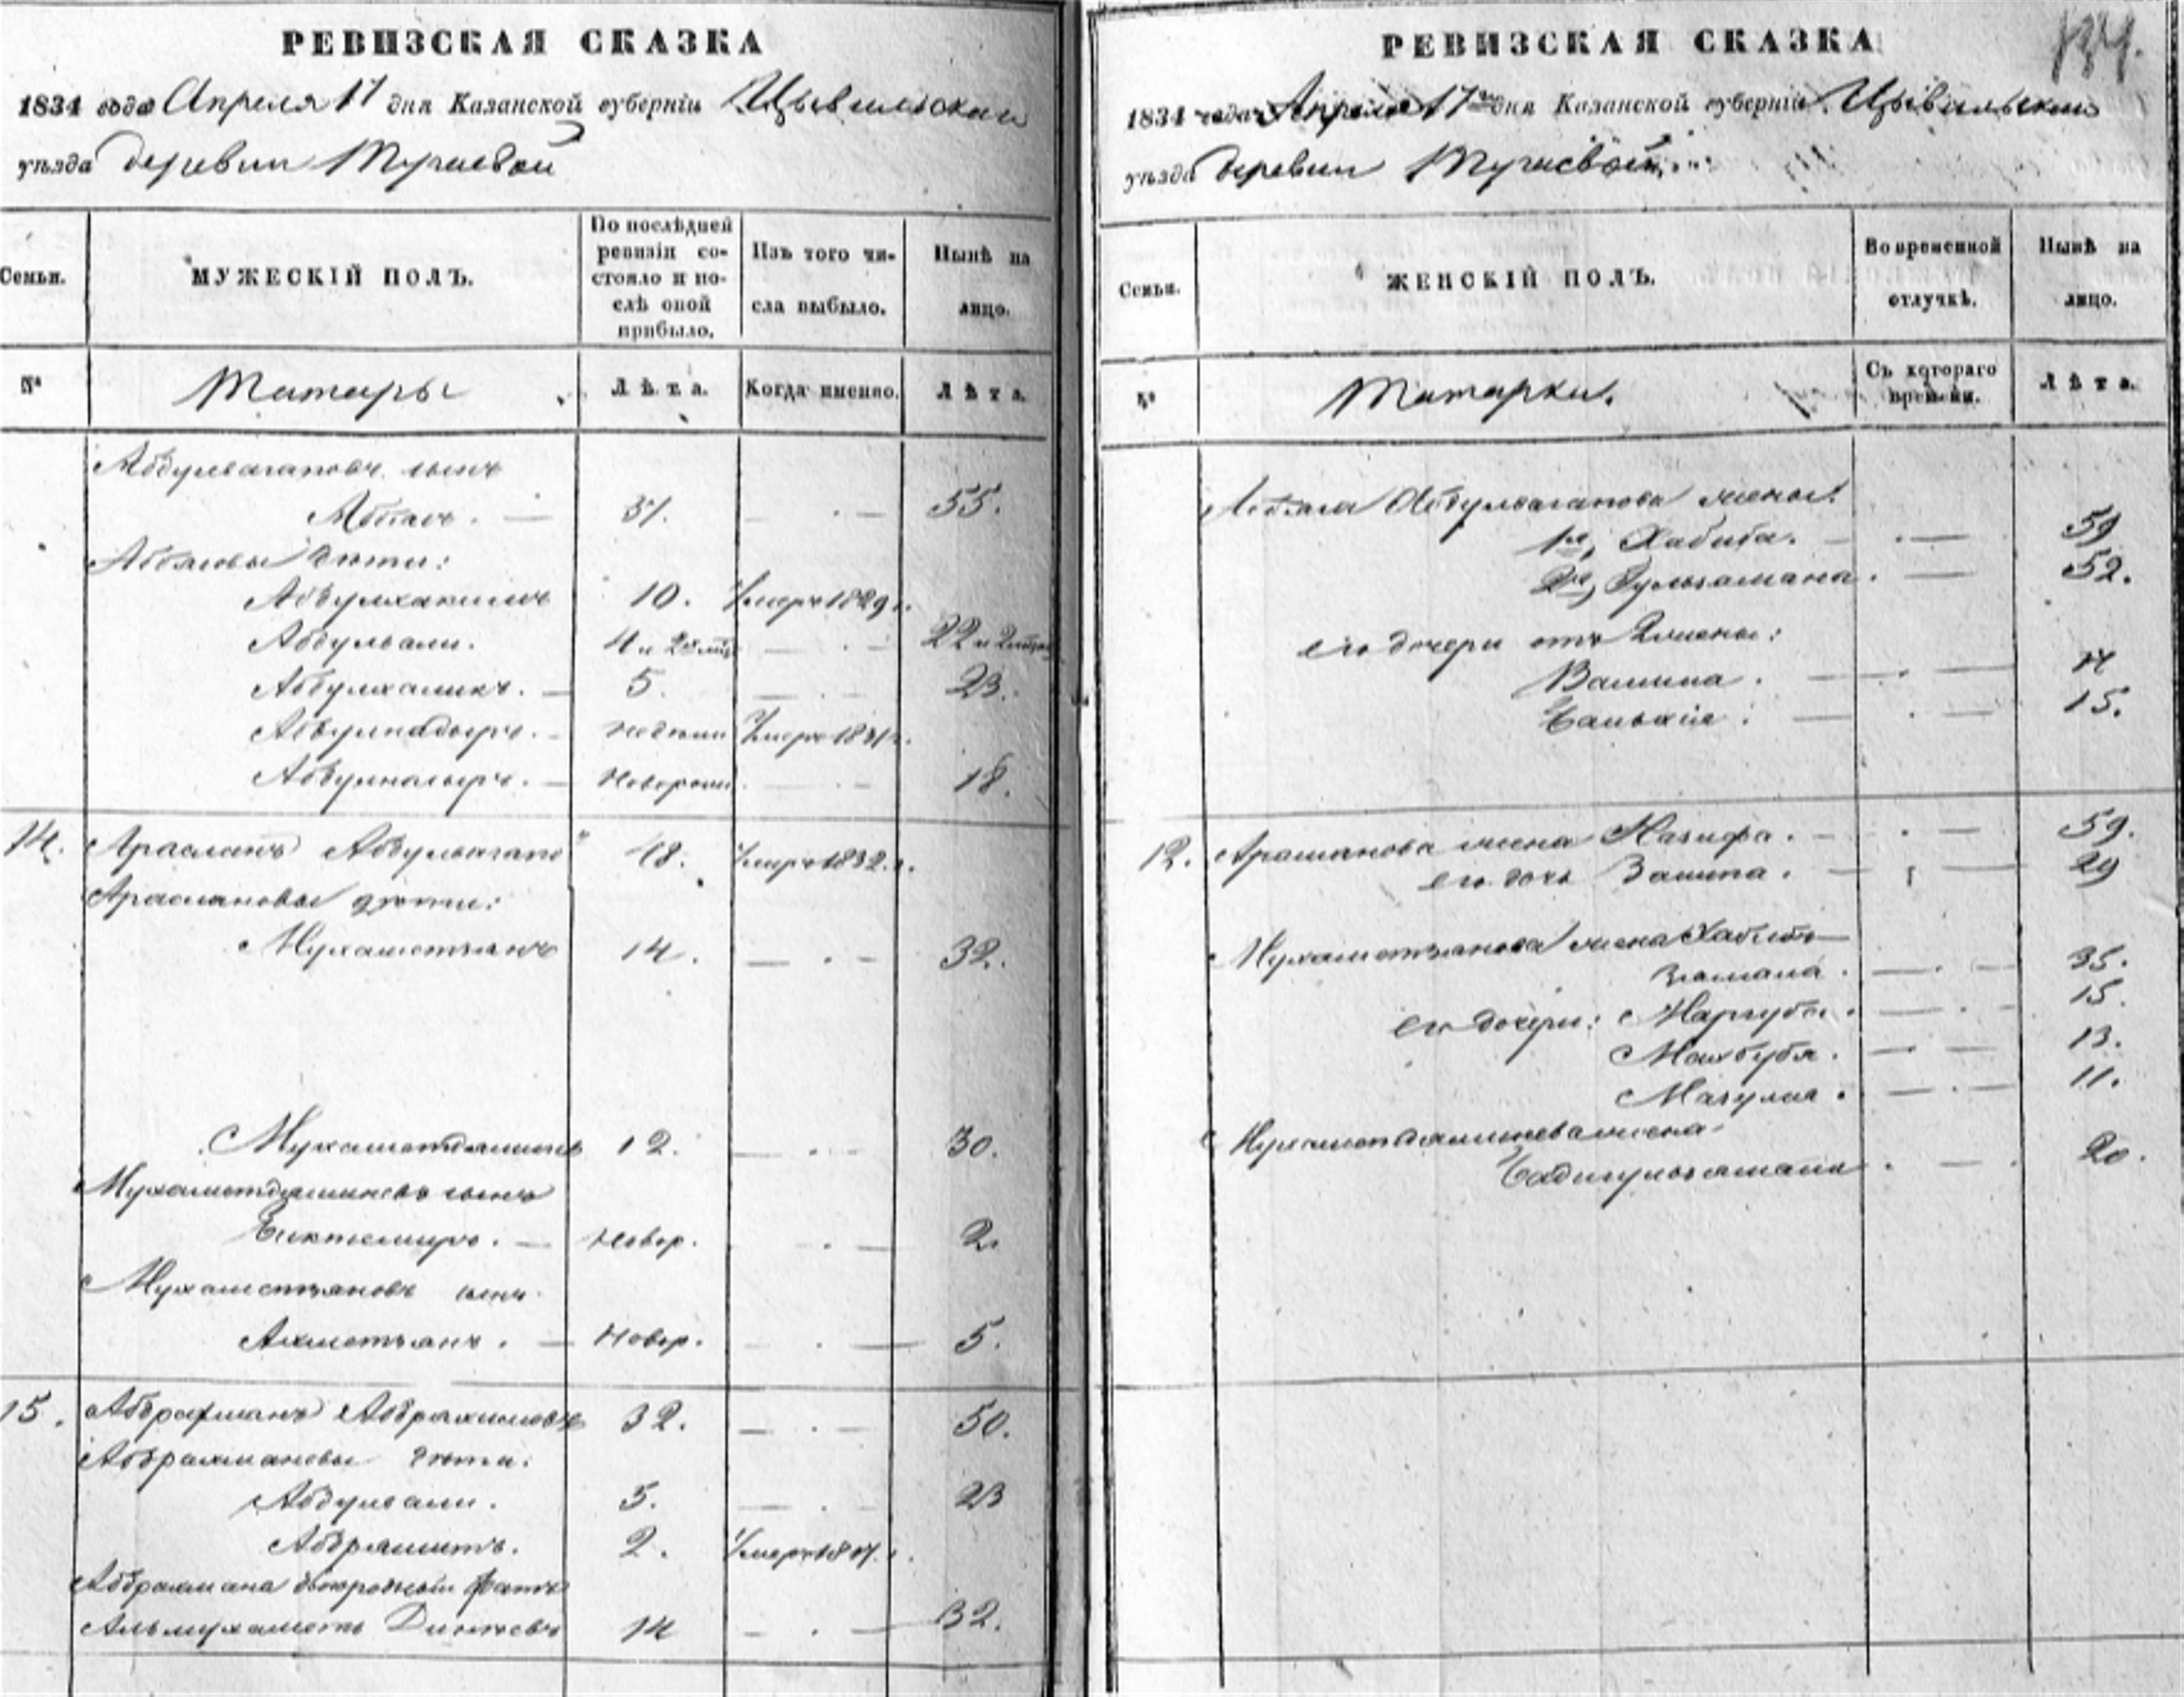 РЕВИЗСКАЯ СКАЗКА
1834 года Апреля 17 дня Казанской губерніи Цывильскаго
уѣзда деревни Тугаевой
Семьи.
МУЖЕСКІЙ ПОЛЪ.
По послѣдней ревизіи состояло и послѣ оной прибыло.
Изъ того числа выбыло.
Нынѣ на лицо.
№
Татары
Лѣта.
Когда именно.
Лѣта.
Абдулвагаповъ сынъ
37. 55.
дѣти:
Абдулхакимъ 10. Умеръ 1829 г.
Абдулвали. 4 и 22 и
Абдулхаликъ. 5. 23.
Абдулкадыръ. недѣли Умеръ 1831 г.
Абдулнасыръ. Новорож. 18.
14. Арасланъ Абдулвагапо 48. Умеръ 1832 г.
Араслановы дѣти:
Мухаметзянъ 14. 32.
Мухаметдаминъ 12. 30.
Мухаметдаминовъ сынъ
Биктемиръ. Новор. 2.
Мухаметзяновъ сынъ
Ахметзянъ. Новор. 5.
15. Абдрахманъ Абдряхимовъ 32. 50.
Абдрахмановы дѣти:
Абдулвали. 5. 23
Абдряшитъ. 2. Умеръ 18
Абдрахмана двоюродный братъ
Альмухаметь 14 32.
РЕВИЗСКАЯ СКАЗКА
134.
1834 года Апреля 17го дня Казанской губерніи Цывильскаго
уѣзда деревни Тугаевой
Семьи.
ЖЕНСКІЙ ПОЛЪ.
Во временной отлучкѣ.
Нынѣ на лицо.
№
Татарки.
Съ котораго времени.
Лѣта.
Абдулвагапова жены:
1я, Хабиба. 59
2я, Гульзамана. 52.
его дочери отъ 2 жены:
15.
12. Арасланова жена Назифа. 59.
его дочь 29
Мухаметзянова жена Хабиб-
замана. 35.
его дочери: Маргуба. 15.
Махбубя. 13.
11.
Мухаметдаминова жена
Бадигульзямаля. 20.